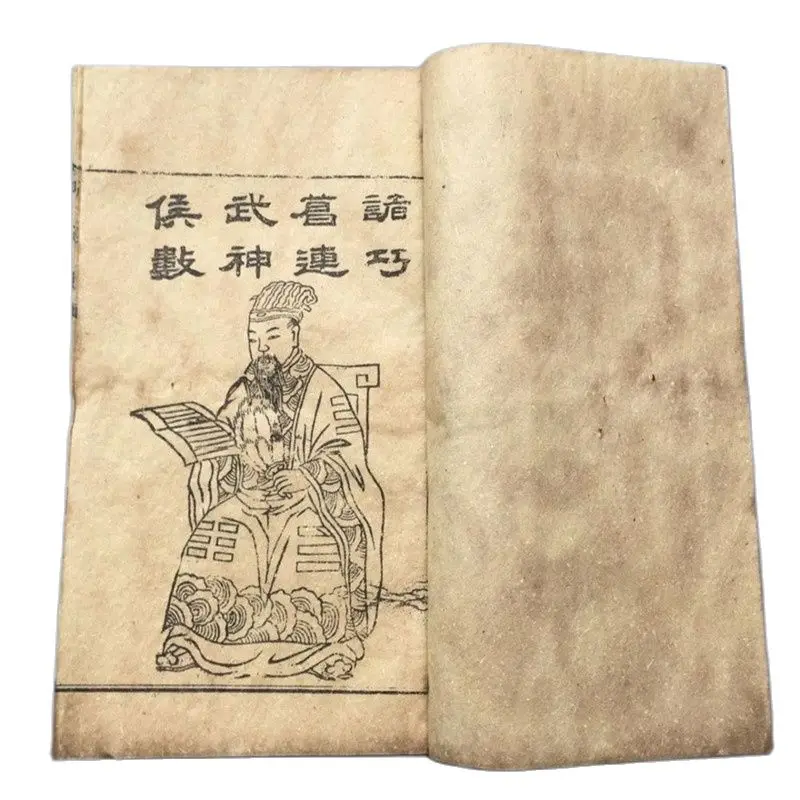 諸葛武侯
巧連神數